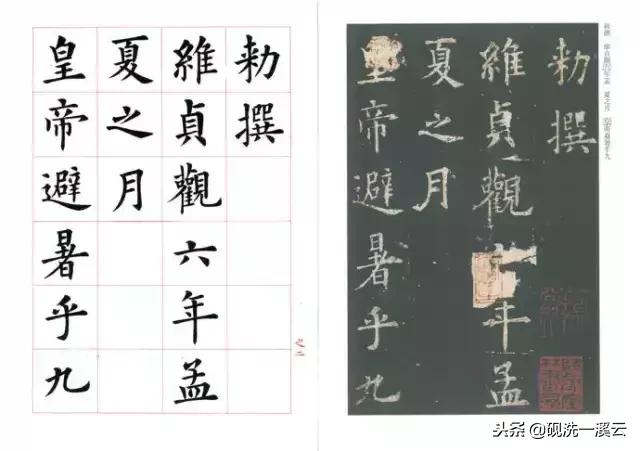 勅撰
維貞觀六年孟
夏之月
皇帝避暑乎九
之二
勅撰
維貞觀年孟
夏之月
皇帝避暑乎九
头条@砚洗一溪云